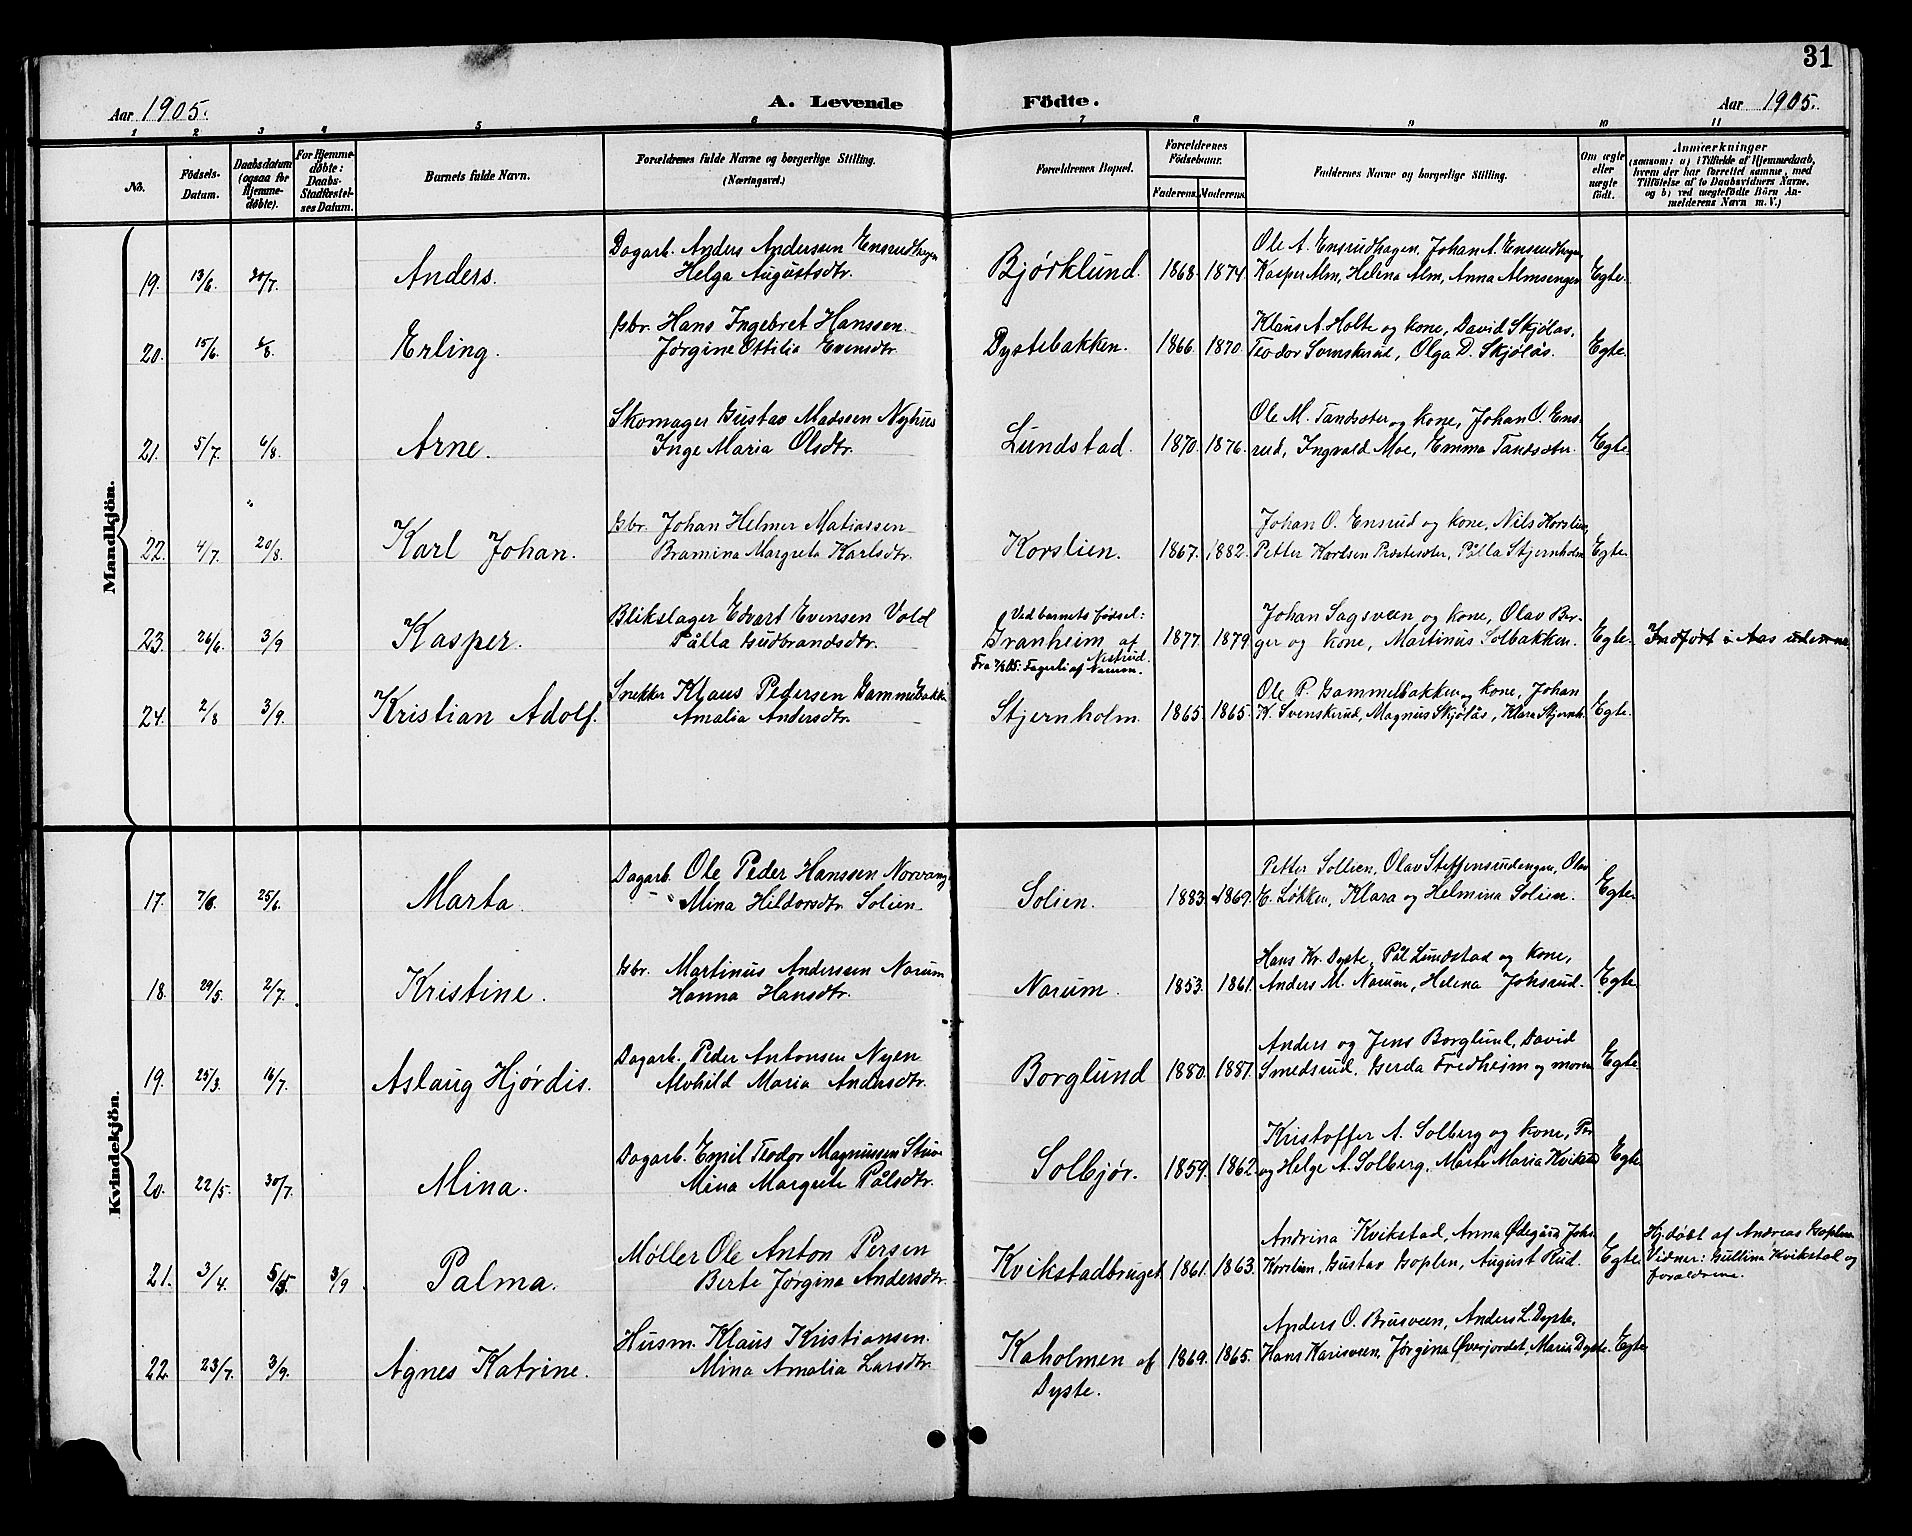 31
Aar 1905. A. Levende Födte. Aar 1905.
1 2 3 4 5 6 7 8 9 10 11
No. Födsels-Datum. Daabsdatum (ogsaa for Hjemmedøbte). For Hjemmedøbte: Daabs-Stadfæstelses Datum. Barnets fulde Navn. Forældrenes fulde Navne og borgerlige Stilling. (Næringsvei.) Forældrenes Bopæl. Forældrenes Födselsaar. Faderens. Moderens. Faddernes Navne og borgerlige Stilling. Om ægte eller uægte født. Anmærkninger (saasom: a) i Tilfælde af Hjemmedaab, hvem der har forrettet samme, med Tilföielse af to Daabsvidners Navne, og b) ved uægtefödte Börn Anmelderens Navn m. V.)
Mandkjön.
Dagarb. Anders Anderssen Ensrudhagen Ole A. Ensrudhagen, Johan A. Ensrudhagen,
19. 13/6. 20/7. Anders. Helga Augustsdtr. Bjørklund. 1868. 1874. Kasper Alm, Helena Alm, Anna Almsengen Egte.
Gbr. Hans Ingebret Hanssen. Klaus A. Holte og kone, David Skjølås,
20. 15/6. 6/8. Erling. Jørgine Ottilia Evensdtr. Dystebakken. 1866. 1870. Teodor Svenskerud, Olga D. Skjølås. Egte.
Skomager Gustav Madssen Nyhus Ole M. Tandsæter og kone, Johan O. Ens-
21. 5/7. 6/8. Arne. Inge Maria Olsdtr. Lundstad. 1870. 1876. rud, Ingvald Moe, Emma Tandsæter. Egte.
Gbr. Johan Helmer Matiassen Johan O. Ensrud og kone, Nils Korslien,
22. 4/7. 20/8. Karl Johan. Bramina Margrete Karlsdtr. Korslien. 1867. 1882. Petter Korlsen Præstesæter, Pålla Stjernholm Egte.
Blikslager Edvart Evensen Vold Ved barnets fødsel: Johan Sagsveen og kone, Olav Ber-
23. 26/6. 3/9 Kasper. Pålla Gudbrandsdtr. Granheim af Nistrud. 1877. 1879 ger og kone, Martinus Solbakken. Egte. Indført i Aas
Fagerli af Narum.
Snekker Klaus Pedersen Gammelbakke Ole P. Gammelbakken og kone, Johan
24. 2/8 3/9. Kristian Adolf. Amalia Andersdtr. Stjernholm. 1865 1865. K. Svenskerud, Magnus Skjølås, Klara Stjernh. Egte.
Kvindekjön.
Dagarb. Ole Peder Hanssen Norvang Petter Sollien, Olav Steffensrudengen, Olav
17. 7/6. 25/6. Marta. Mina Hildorsdtr. Solien. Solien. 1883. 1869. E. Løkken, Klara og Helmina Solien. Egte.
Gbr. Martinus Anderssen Narum Hans Kr. Dyste, Pål Lundstad og kone,
18. 29/5. 2/7. Kristine. Hanna Hansdtr. Narum. 1853. 1861. Anders M. Narum, Helena Johsrud. Egte
Dagarb. Peder Antonsen Nyen Anders og Jens Borglund, David
19. 25/3. 16/7. Aslaug Hjørdis. Alvhild Maria Andersdtr. Borglund 1880. 1887. Smedsrud. Gerda Fredheim og moren Egte
Dagarb. Emil Teodor Magnussen Kristoffer A. Solberg og kone, Per
20. 22/5. 30/7. Mina. Mina Margrete Pålsdtr. Solbjør. 1859. 1862. og Helge A. Solberg. Marte Maria Kvikstad Egte
Møller Ole Anton Persen Andrina Kvikstad, Anna Ødegård, Johs. Hj.døbt af Andreas Goplen.
21. 3/4. 5/5. 3/9. Palma. Berte Jørgina Andersdtr. Kvikstadbruget 1861. 1863. Korslien, Gustav Goplen, August Rud. Egte Vidner: Gullina Kvikstad og
forældrene.
Husm. Klaus Kristiansen. Anders O. Brusveen, Anders L. Dyste,
22. 23/7. 3/9. Agnes Katrine. Mina Amalia Larsdtr. Kaholmen af 1869. 1865. Hans Karisveen, Jørgina Øverjordet, Maria Dyste. Egte
Dyste.